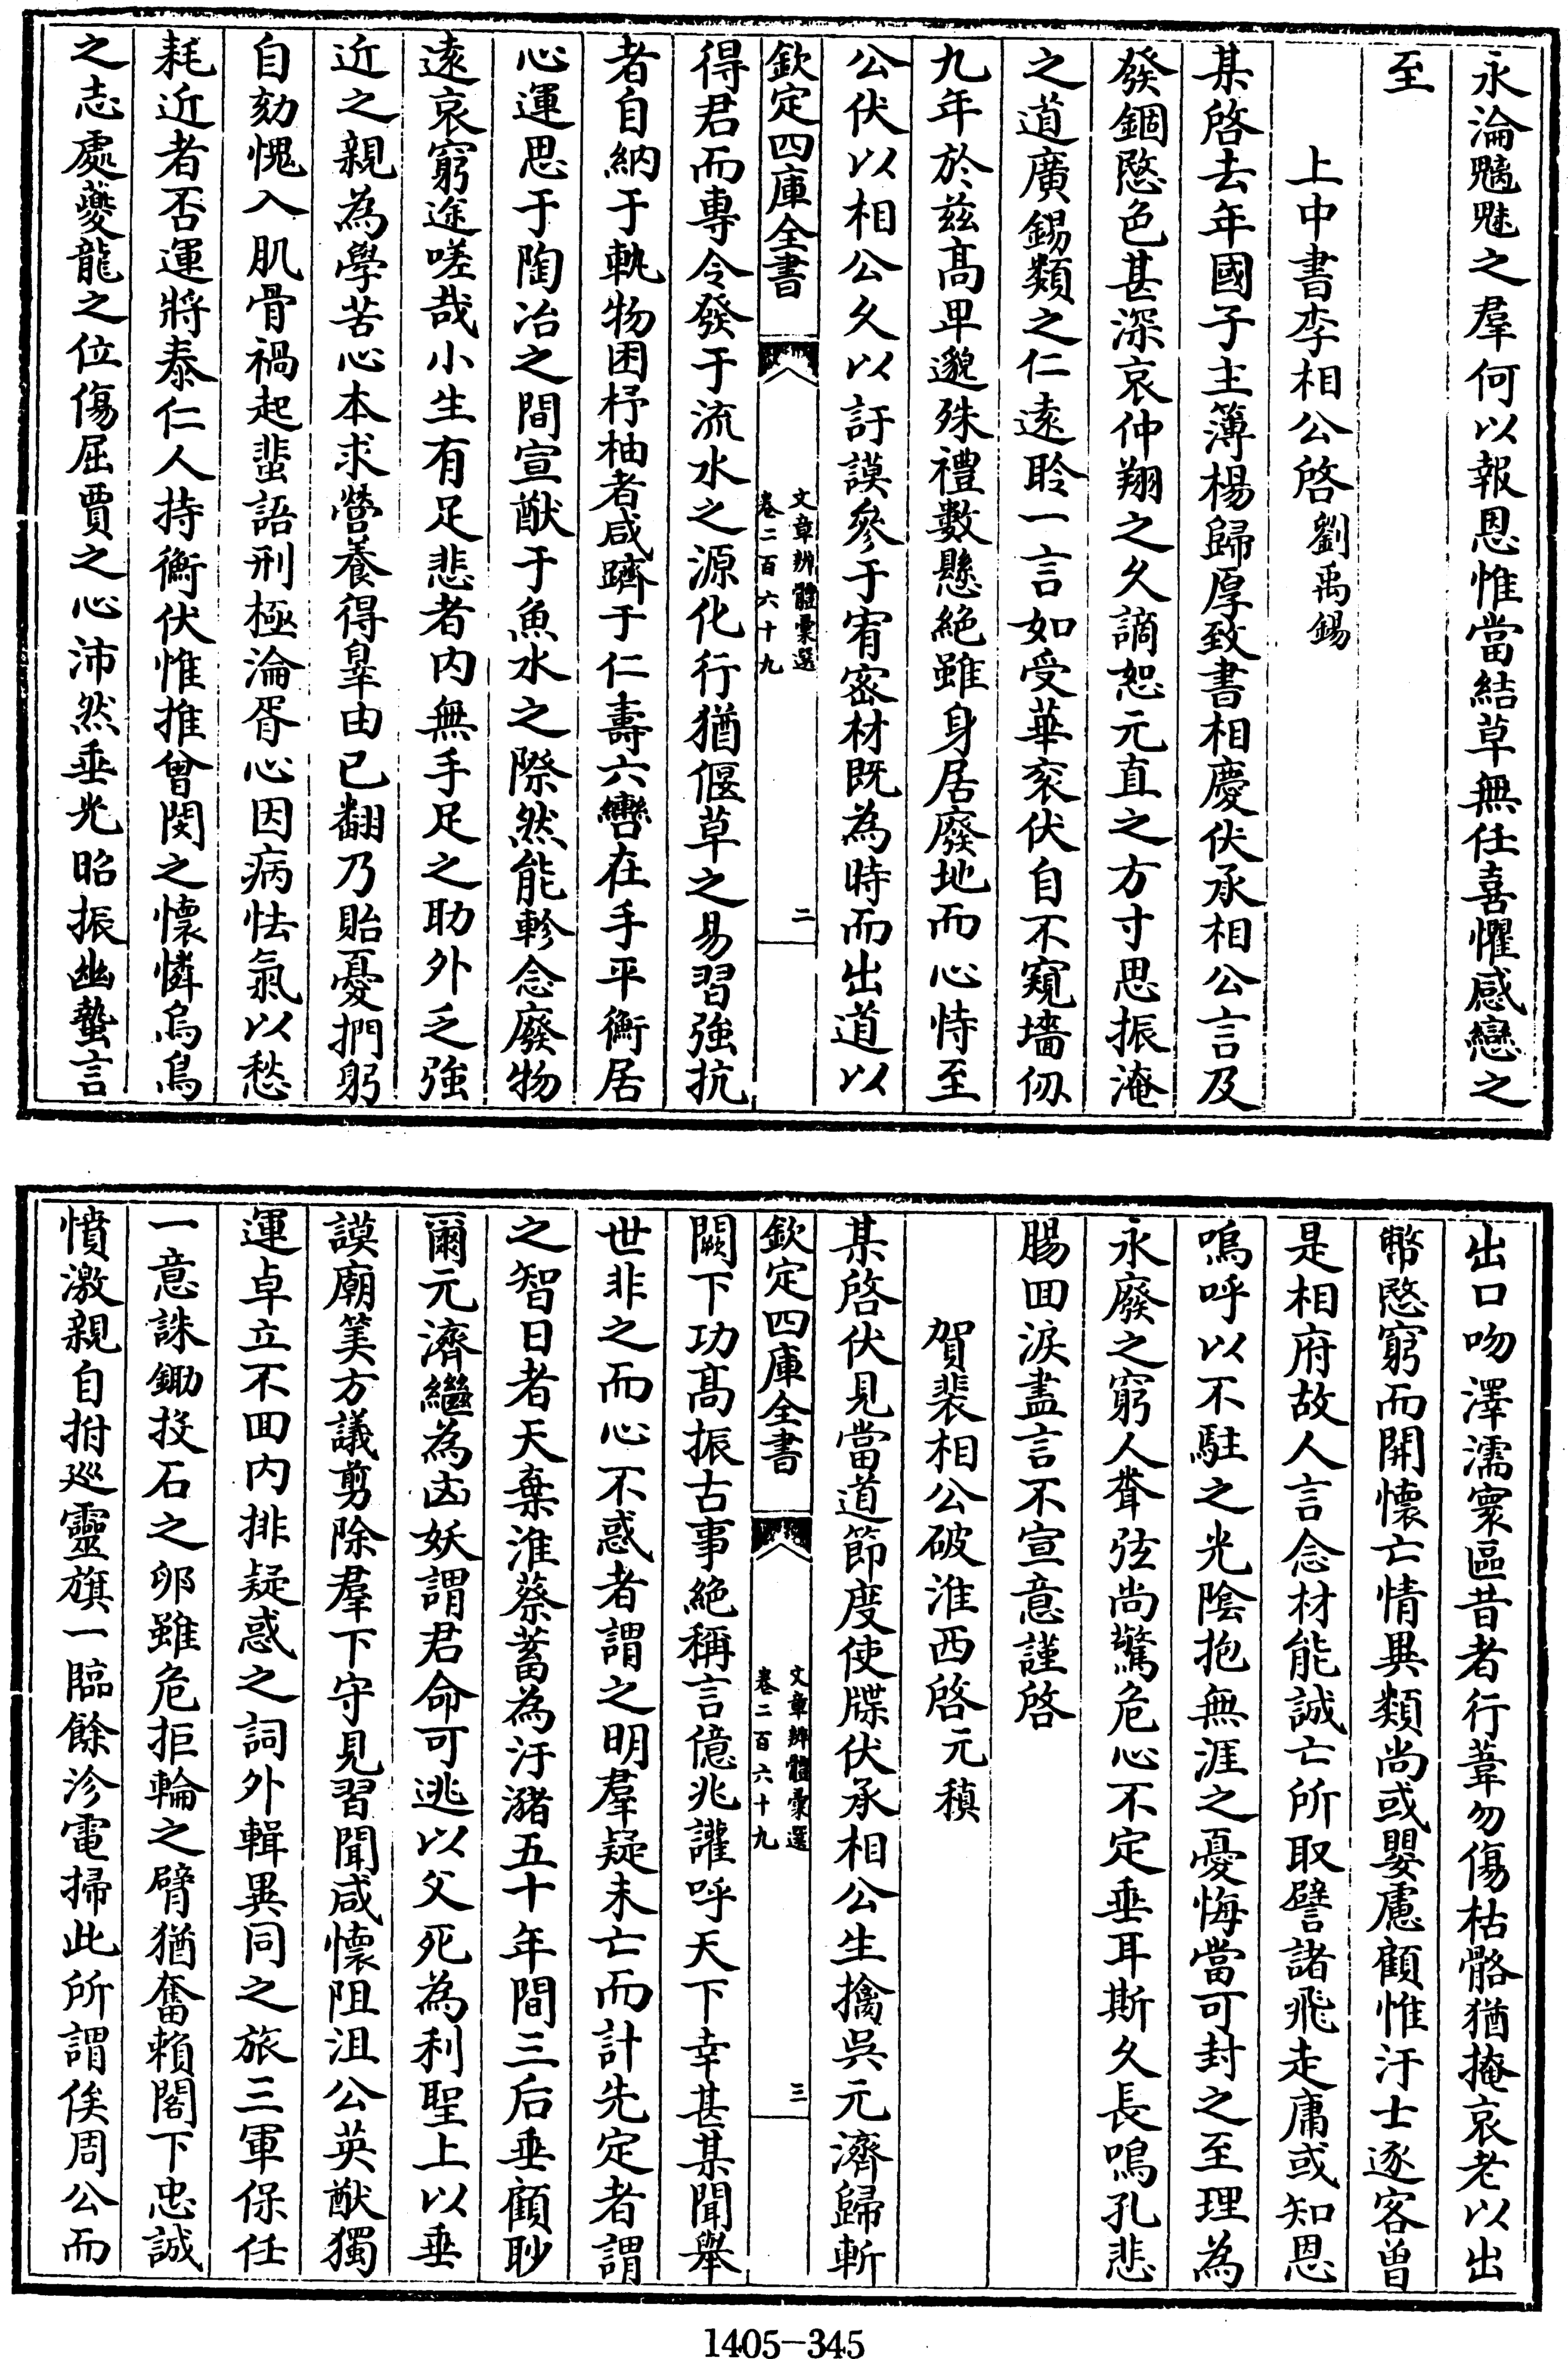 永淪魑魅之羣何以報恩惟當結草無任喜懼感戀之
至
上中書李相公啓劉禹錫
某啓去年國子主簿楊歸厚致書相慶伏承相公言及
發錮愍色甚深哀仲翔之久謫恕元直之方寸思振淹
之道廣錫類之仁遠聆一言如受華衮伏自不窺墻仞
九年於兹髙卑邈殊禮數懸絶雖身居廢地而心恃至
公伏以相公久以訏謨參于宥宻材既為時而出道以
欽定四庫全書
文章辨體彙選
卷二百六十九
二
得君而專令發于流水之源化行猶偃草之易習強抗
者自納于軌物困杼柚者咸躋于仁壽六轡在手平衡居
心運思于陶冶之間宣猷于魚水之際然能軫念廢物
遠哀窮途嗟哉小生有足悲者内無手足之助外乏強
近之親為學苦心本求營養得辠由已翻乃貽憂捫躬
自劾愧入肌骨禍起蜚語刑極淪胥心因病怯氣以愁
耗近者否運將泰仁人持衡伏惟推曾閔之懷憐烏鳥
之志處夔龍之位傷屈賈之心沛然垂光昭振幽蟄言
出口吻澤濡寰區昔者行葦勿傷枯骼猶掩哀老以出
幣愍窮而開懷亡情異類尚或嬰慮顧惟汙士逐客曽
是相府故人言念材能誠亡所取譬諸飛走庸或知恩
嗚呼以不駐之光陰抱無涯之憂悔當可封之至理為
永廢之窮人聋弦尚驚危心不定垂耳斯久長鳴孔悲
腸回淚盡言不宣意謹啓
賀裴相公破淮西啓元稹
某啓伏見當道節度使牒伏承相公生擒吳元濟歸斬
欽定四庫全書
文章辨體彙選
卷二百六十九
三
闕下功髙振古事絶稱言億兆讙呼天下幸甚某聞舉
世非之而心不惑者謂之明羣疑未亡而計先定者謂
之智日者天棄淮蔡蓄為汙瀦五十年間三后垂顧眇
爾元濟繼為凶妖謂君命可逃以父死為利聖上以垂
謨廟筭方議剪除羣下守見習聞咸懷阻沮公英猷獨
運卓立不回内排疑惑之詞外輯異同之旅三軍保任
一意誅鋤投石之卵雖危拒輪之臂猶奮賴閣下忠誠
憤激親自拊巡靈旗一臨餘沴電掃此所謂俟周公而
1405-345